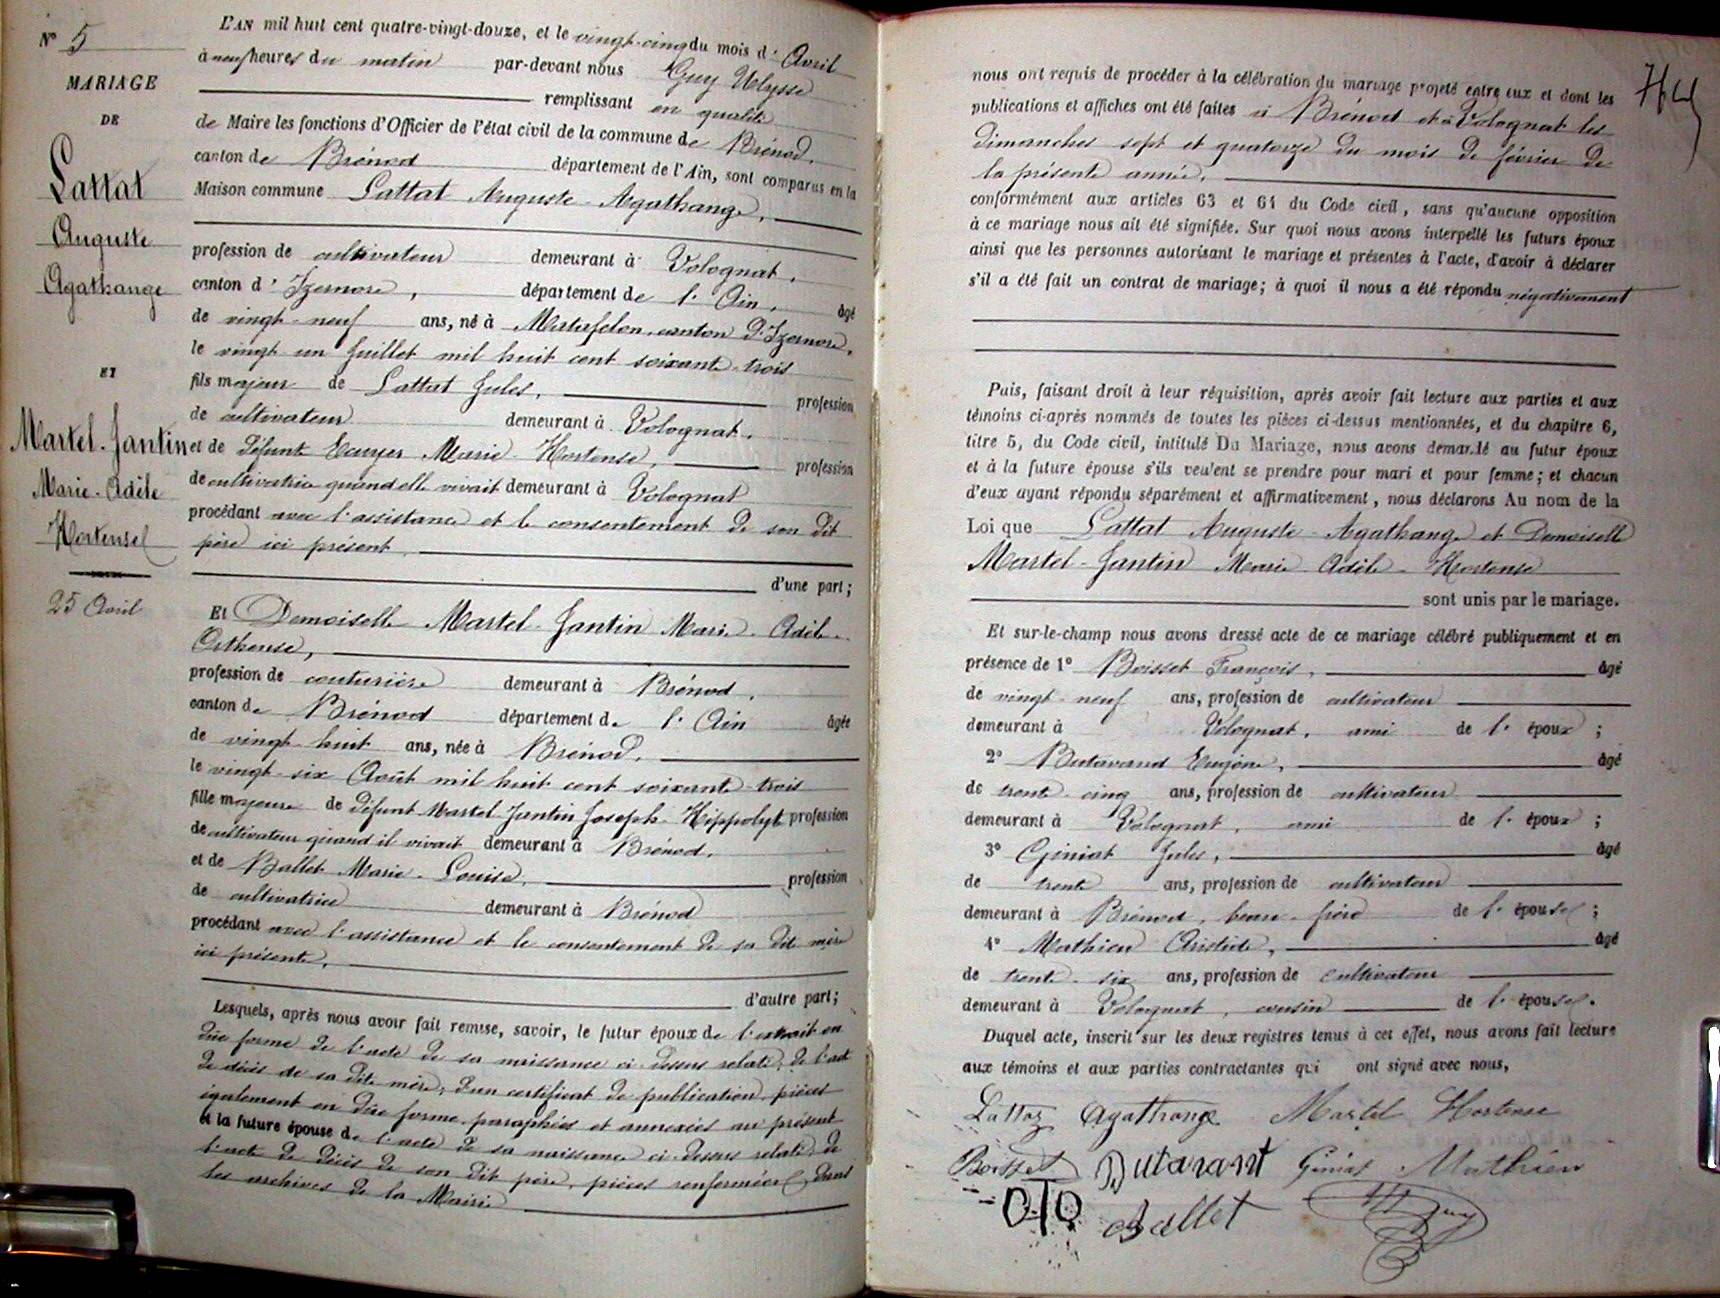 N° 5
MARIAGE
DE
Lattat
Auguste
Agathange
ET
Martel-Jantin
Marie-Adèle
Hortense
25 Avril
L'AN mil huit cent quatre-vingt-douze, et le vingt-cinq du mois d'Avril
à neuf heures du matin par-devant nous Guy Ulysse
remplissant en qualité
de Maire les fonctions d'Officier de l'état civil de la commune de Brénod,
canton de Brénod département de l'Ain, sont comparus en la
Maison commune Lattat Auguste-Agathange,
profession de cultivateur demeurant à Volognat,
canton d'Izernore, département de l'Ain, âgé
de vingt-neuf ans, né à Matafelon, canton d'Izernore,
le vingt un Juillet mil huit cent soixante-trois
fils majeur de Lattat Jules, profession
de cultivateur demeurant à Volognat,
et de défunt Marie-Hortense, profession
de cultivatrice quand elle vivait demeurant à Volognat
procédant avec l'assistance et le consentement de son dit
père ici présent,
d'une part;
Et Demoiselle Martel-Jantin Marie-Adèle-
Orthense,
profession de couturière demeurant à Brénod,
canton de Brénod département de l'Ain âgée
de vingt-huit ans, née à Brénod,
le vingt-six Août mil huit cent soixante-trois
fille majeure de défunt Martel-Jantin Joseph-Hippolyte profession
de cultivateur quand il vivait demeurant à Brénod,
et de Ballet Marie-Louise, profession
de cultivatrice demeurant à Brénod
procédant avec l'assistance et le consentement de sa dite mère
ici présente,
d'autre part;
Lesquels, après nous avoir fait remise, savoir, le futur époux de l'extrait en
dûe forme de l'acte de sa naissance ci-dessus relaté, de l'acte
de décès de sa dite mère, d'un certificat de publication, pièces
également en dûe forme, paraphées et annexées au présent
et la future épouse de l'acte de sa naissance ci-dessus relaté, de
l'acte de décès de son dit père, pièces renfermées dans
les archives de la Mairie
nous ont requis de procéder à la célébration du mariage projeté entre eux et dont les
publications et affiches ont été faites à Brénod et à Volognat les
dimanches sept et quatorze du mois de février de
la présente année,
conformément aux articles 63 et 64 du Code civil, sans qu'aucune opposition
à ce mariage nous ait été signifiée. Sur quoi nous avons interpellé les futurs époux
ainsi que les personnes autorisant le mariage et présentes à l'acte, d'avoir à déclarer
s'il a été fait un contrat de mariage; à quoi il nous a été répondu négativement
Puis, faisant droit à leur réquisition, après avoir fait lecture aux parties et aux
témoins ci-après nommés de toutes les pièces ci-dessus mentionnées, et du chapitre 6,
titre 5, du Code civil, intitulé Du Mariage, nous avons demandé au futur époux
et à la future épouse s'ils veulent se prendre pour mari et pour femme; et chacun
d'eux ayant répondu séparément et affirmativement, nous déclarons Au nom de la
Loi que Lattat Auguste-Agathange et Demoiselle
Martel-Jantin Marie-Adèle-Hortense
sont unis par le mariage.
Et sur-le-champ nous avons dressé acte de ce mariage célébré publiquement et en
présence de 1° Boisset François, âgé
de vingt-neuf ans, profession de cultivateur
demeurant à Volognat, ami de l'époux;
2° Butavand Eugène, âgé
de trente-cinq ans, profession de cultivateur
demeurant à Volognat, ami de l'époux;
3° Giniat Jules, âgé
de trente ans, profession de cultivateur
demeurant à Brénod, beau-frère de l'épouse;
4° Mathieu Aristide, âgé
de trente-six ans, profession de cultivateur
demeurant à Volognat, cousin de l'épouse.
Duquel acte, inscrit sur les deux registres tenus à cet effet, nous avons fait lecture
aux témoins et aux parties contractantes qui ont signé avec nous,
Agathange Martel Hortense
Boisset Butavant Giniat Mathieu
Ballet Guy